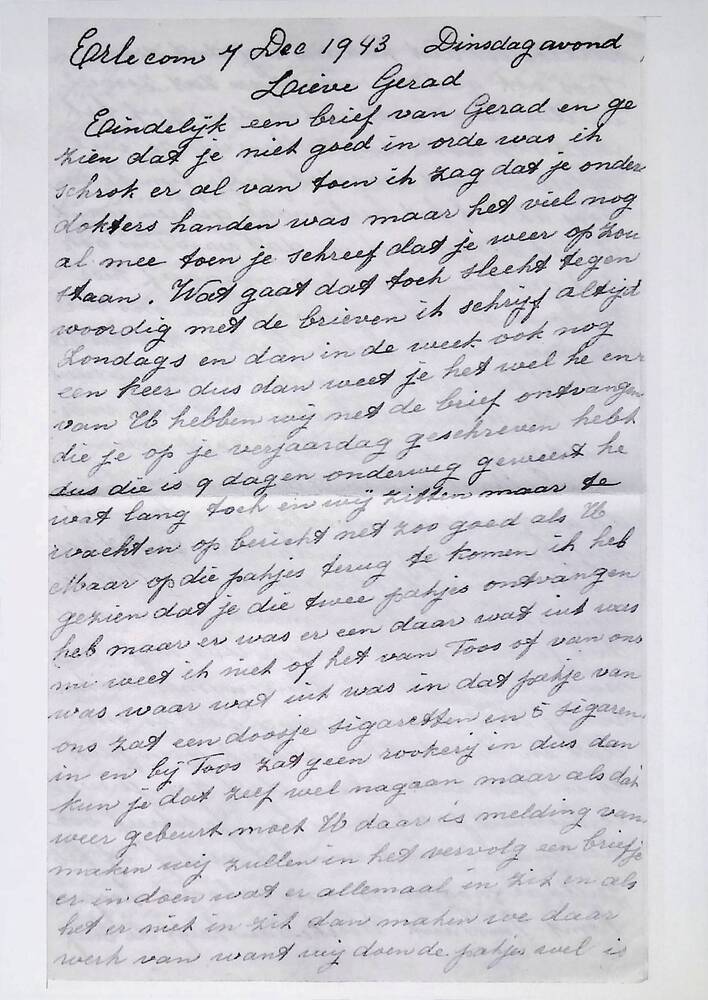 Erlecom 7 Dec 1943 Dinsdagavond
Lieve Gerad
Eindelijk een brief van Gerad en ge
zien dat je niet goed in orde was ik
schrok er al van toen ik zag dat je onder
dokters handen was maar het viel nog
al mee toen je schreef dat je weer op zou
staan. Wat gaat dat toch slecht tegen
woordig met de brieven ik schrijf altijd
Zondags en dan in de week ook nog
een keer dus dan weet je het wel he en
van U hebben wij net de brief ontvangen
die je op je verjaardag geschreven hebt
dus die is 9 dagen onderweg geweest he
wat lang toch en wij zitten maar te
wachten op bericht net zoo goed als U
Maar op die pakjes terug te komen ik heb
gezien dat je die twee pakjes ontvangen
heb maar er was er een daar wat uit was
nu weet ik niet of het van Toos of van ons
was waar wat uit was in dat pakje van
ons zat een doosje sigaretten en 5 sigaren
in en bij Toos zat geen rookerij in dus dan
kun je dat zelf wel nagaan maar als dat
weer gebeurt moet U daar is melding van
maken wij zullen in het vervolg een briefje
er in doen wat er allemaal in zit en als
het er niet in zit dan maken we daar
werk van want wij doen de pakjes wel is